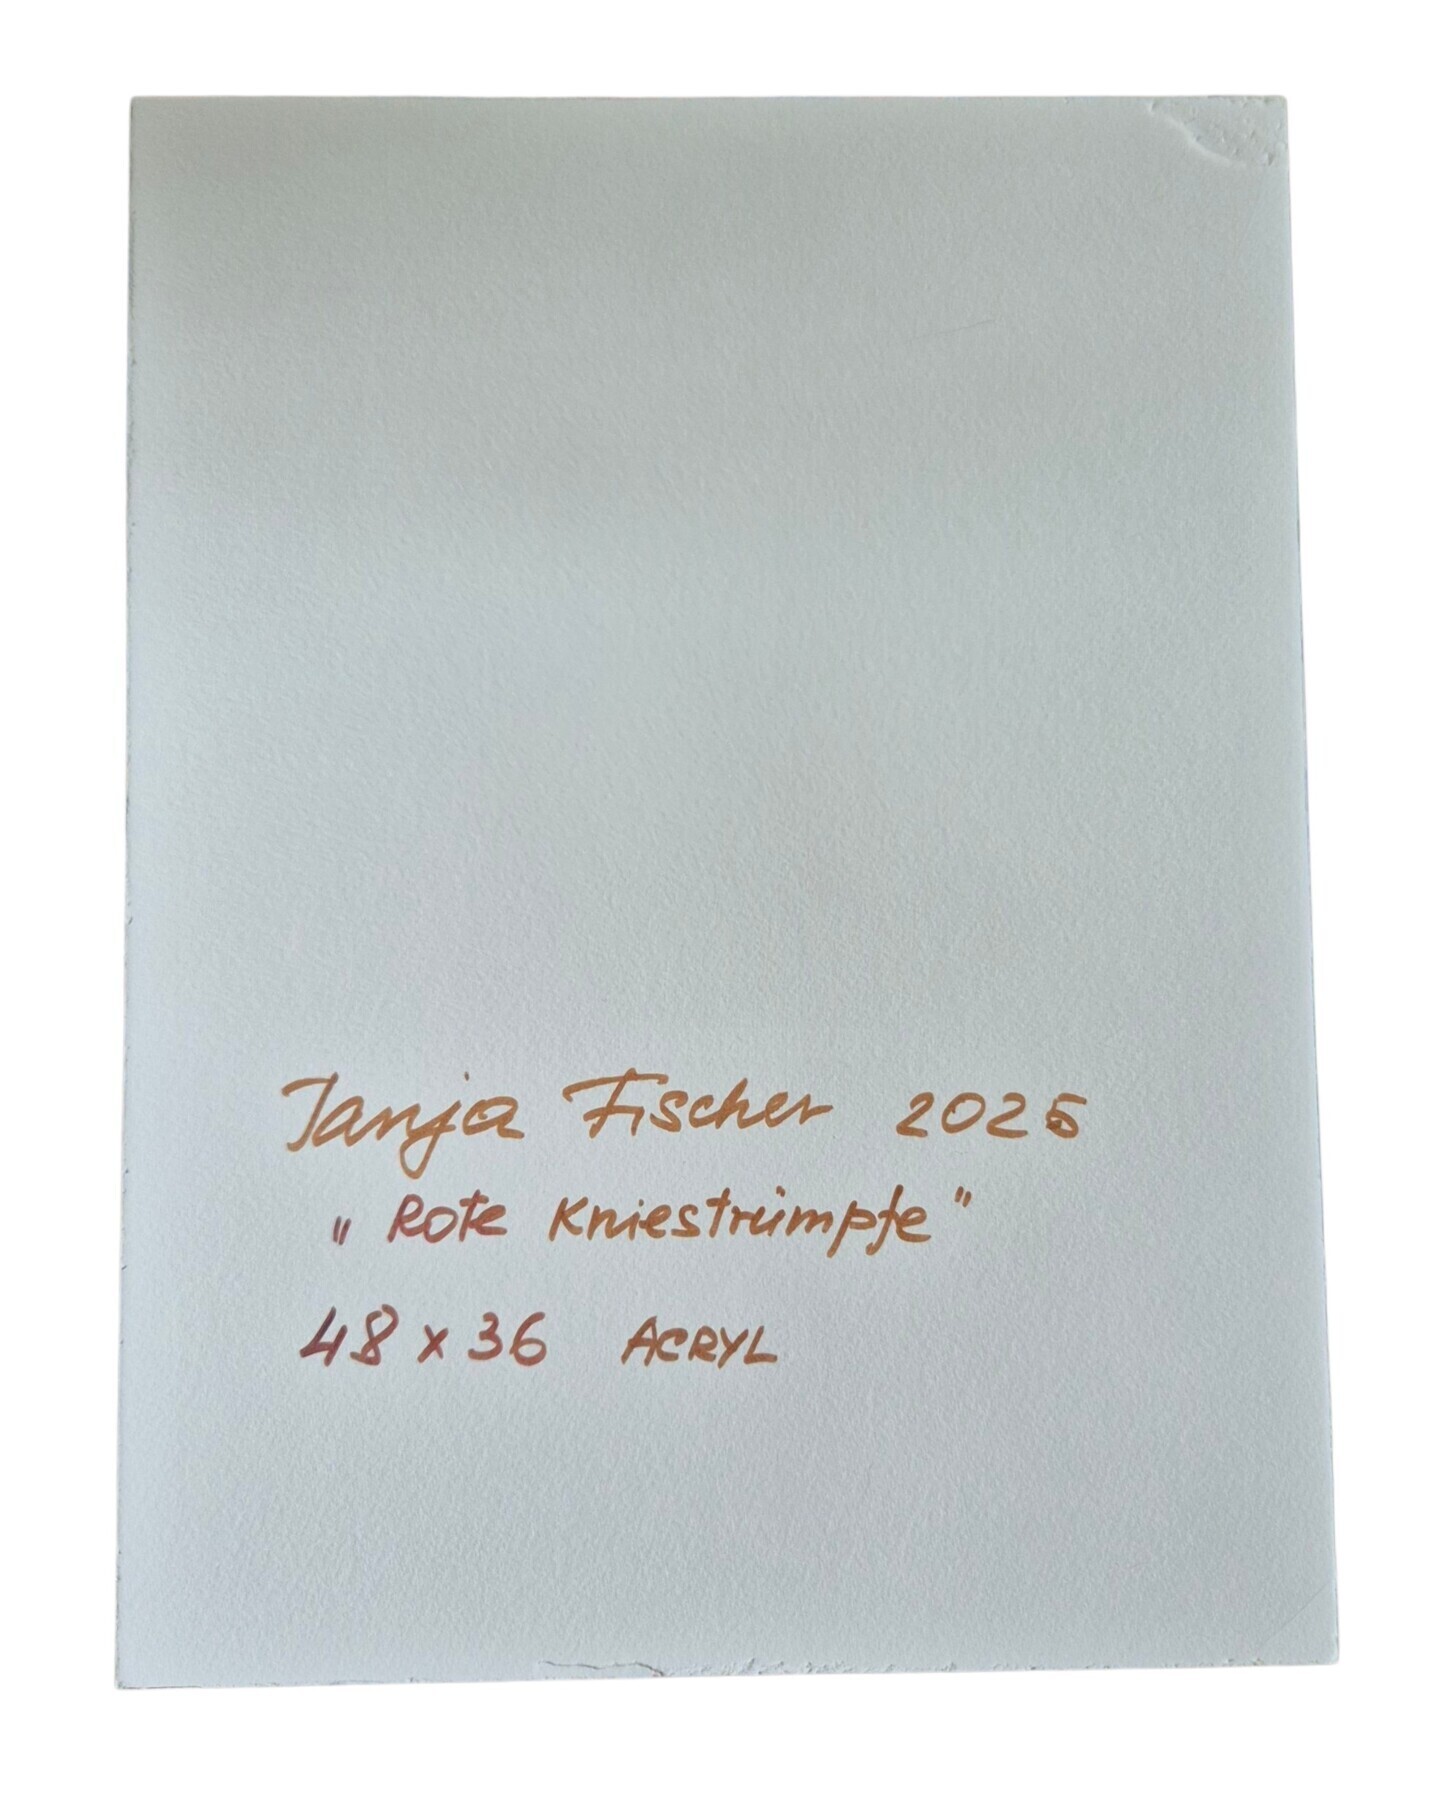 Tanja Fischer 2025
"Rote Kniestrümpfe"
48 x 36 ACRYL